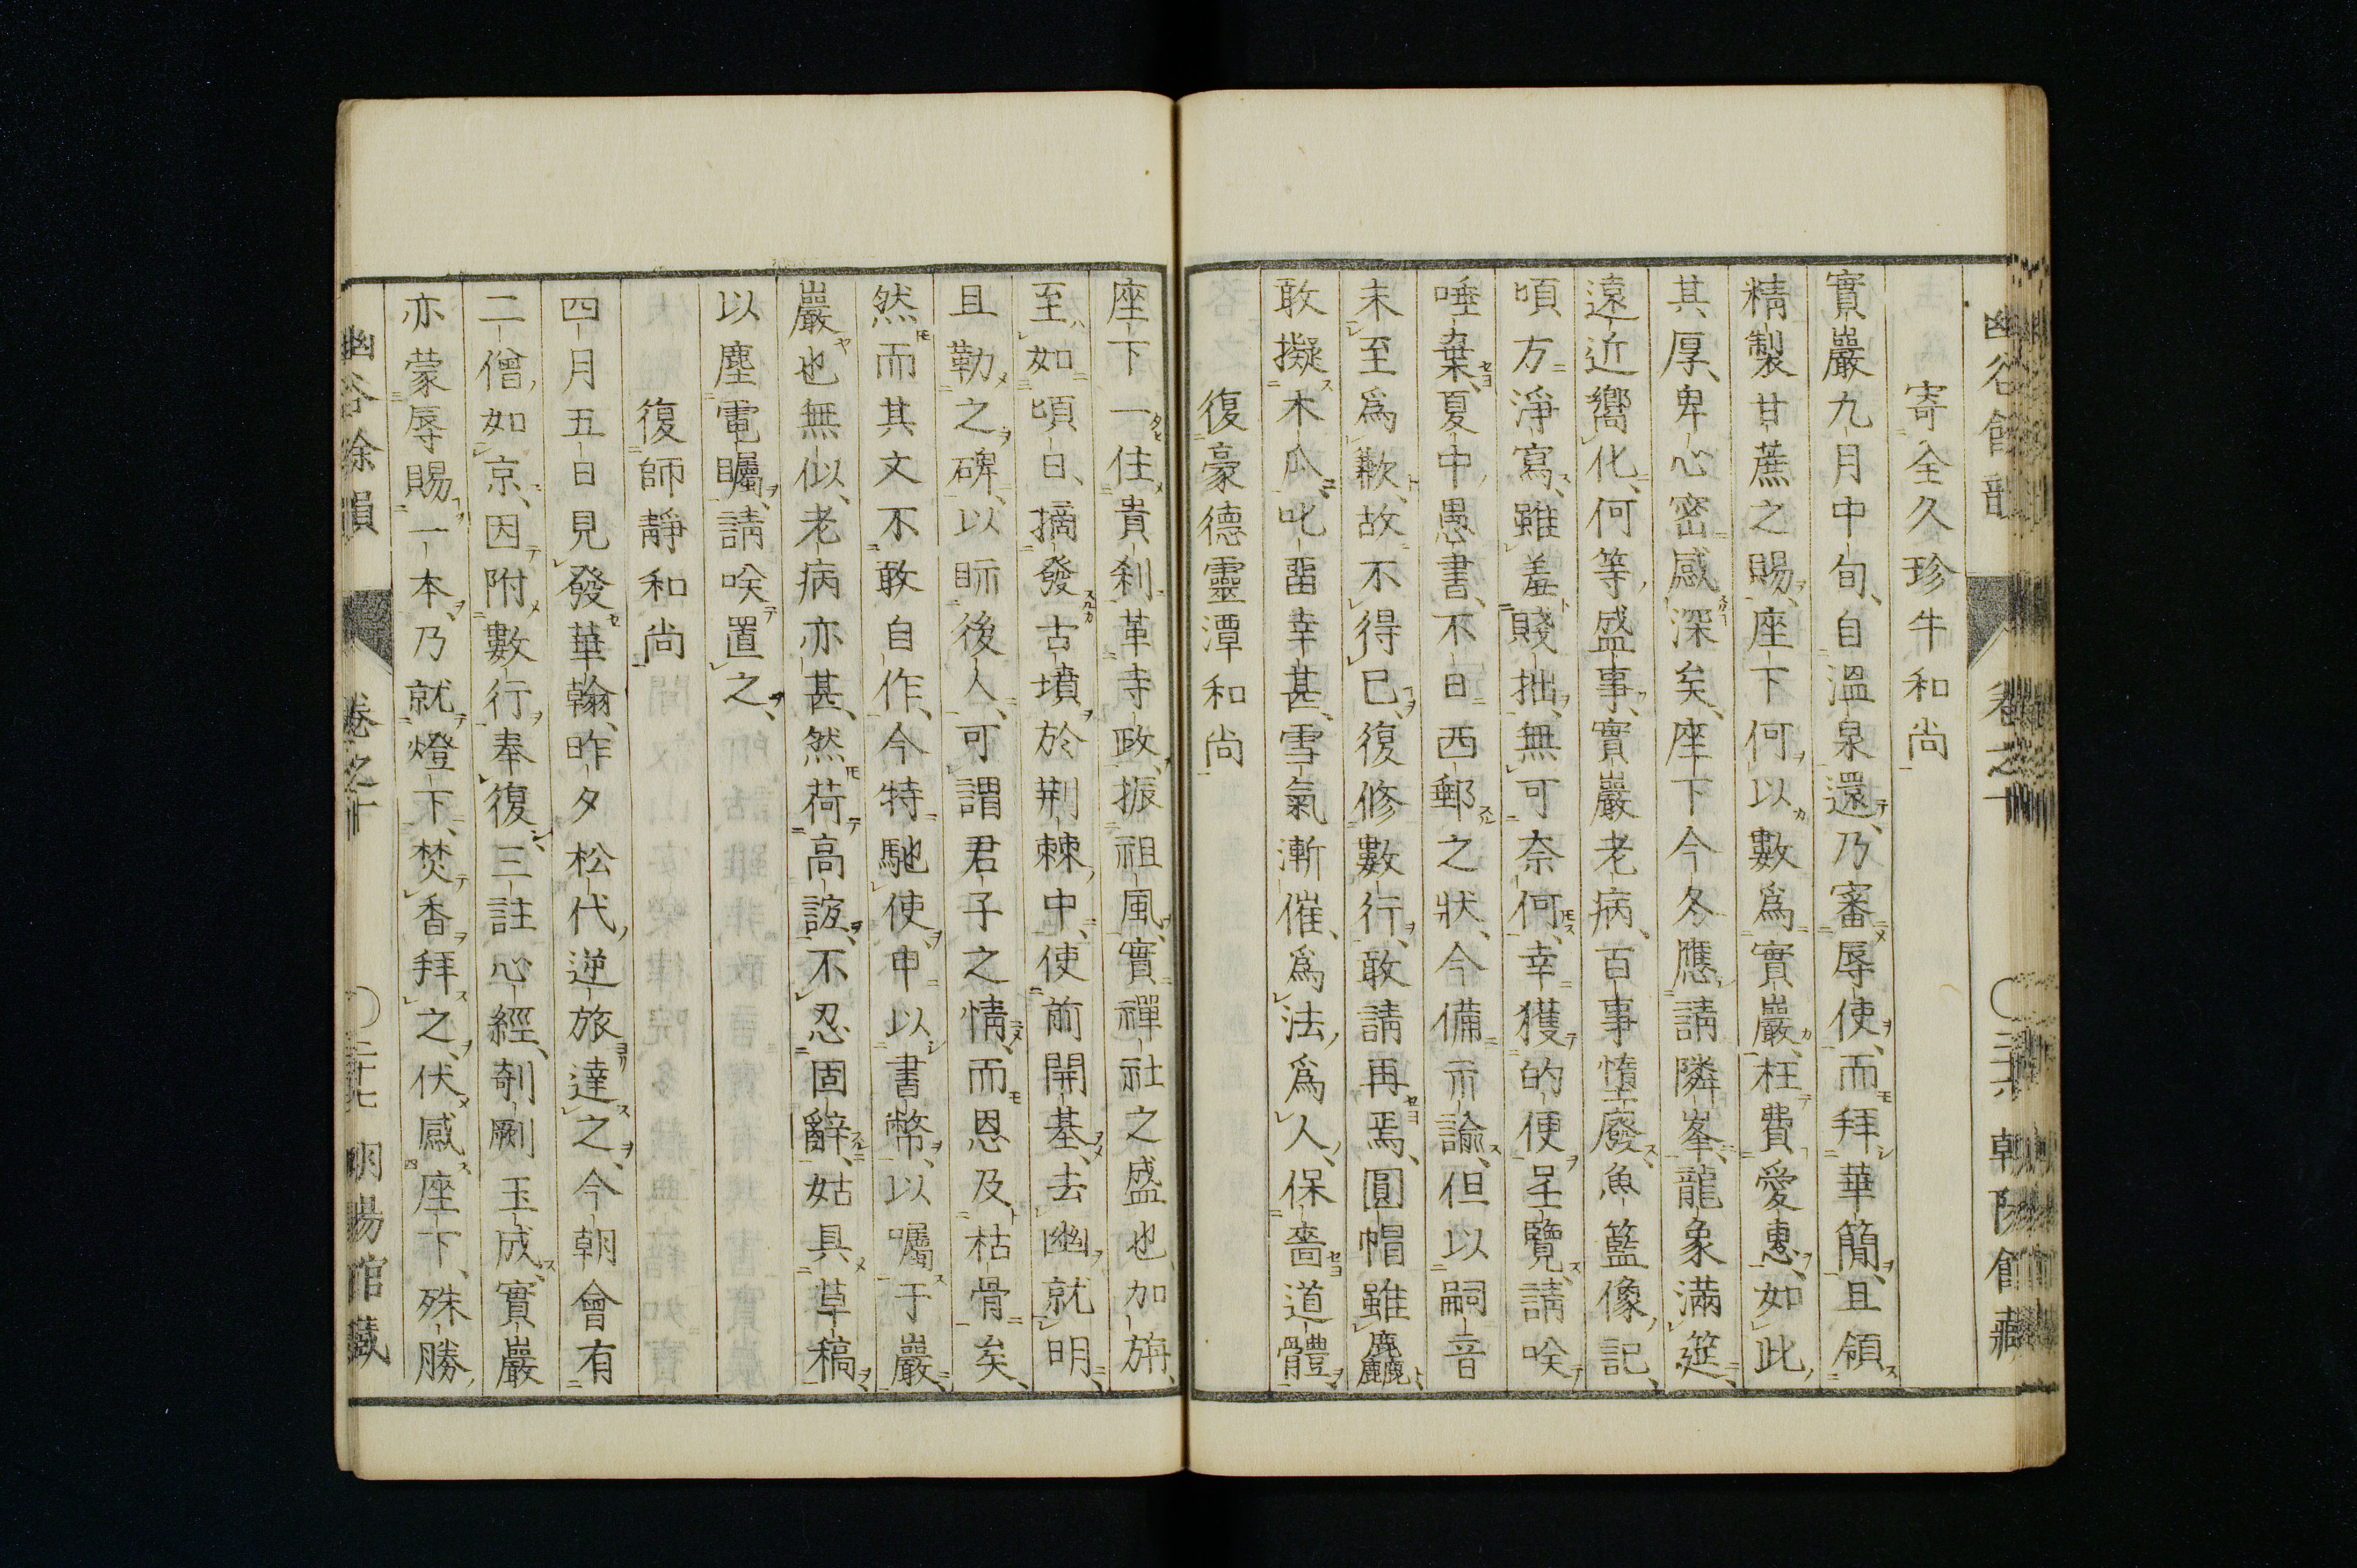 寄全久珍牛和尚
實巖九月中旬、自溫泉還、乃審辱使、而拜華簡、且領
精製甘蔗之賜、座下何以數爲實巖、枉費愛惠、如此
其厚、卑心密感深矣、座下今冬應請隣峯、龍象滿筵、
遠近嚮化、何等盛事、實巖老病、百事惰廢、魚籃像記、
頃方淨寫、雖羞賤拙、無可奈何、幸獲的便呈覽、請唉
唾棄、夏中愚書、不日西郵之狀、今備示諭、但以嗣音
未至爲歉、故不得已、復修數行、敢請再焉、圓帽雖麤
敢擬木瓜、叱畱幸甚、雪氣漸催、爲法爲人、保嗇道體
復豪德靈潭和尚
座下一住貴刹、革寺政、振祖風、實禪社之盛也加旃、
至如頃日、摘發古墳於荆棘中、使前開基、去幽就明、
且勒之碑、以眎後人、可謂君子之情、而恩及枯骨矣、
然而其文不敢自作、今特馳使、申以書幣、以囑于巖、
巖也無似、老病亦甚、然荷高誼、不忍固辭、姑具草稿、
以塵電矚、請唉置之、
復師靜和尚
四月五日見發華翰、昨夕松代逆旅達之、今朝會有
二僧如京、因附數行奉復、三註心經、剞劂玉成、實巖
亦蒙辱賜一本、乃就燈下、焚香拜之、伏感座下、殊勝
幽谷餘韻 卷之十 〇二十七 明暘館藏